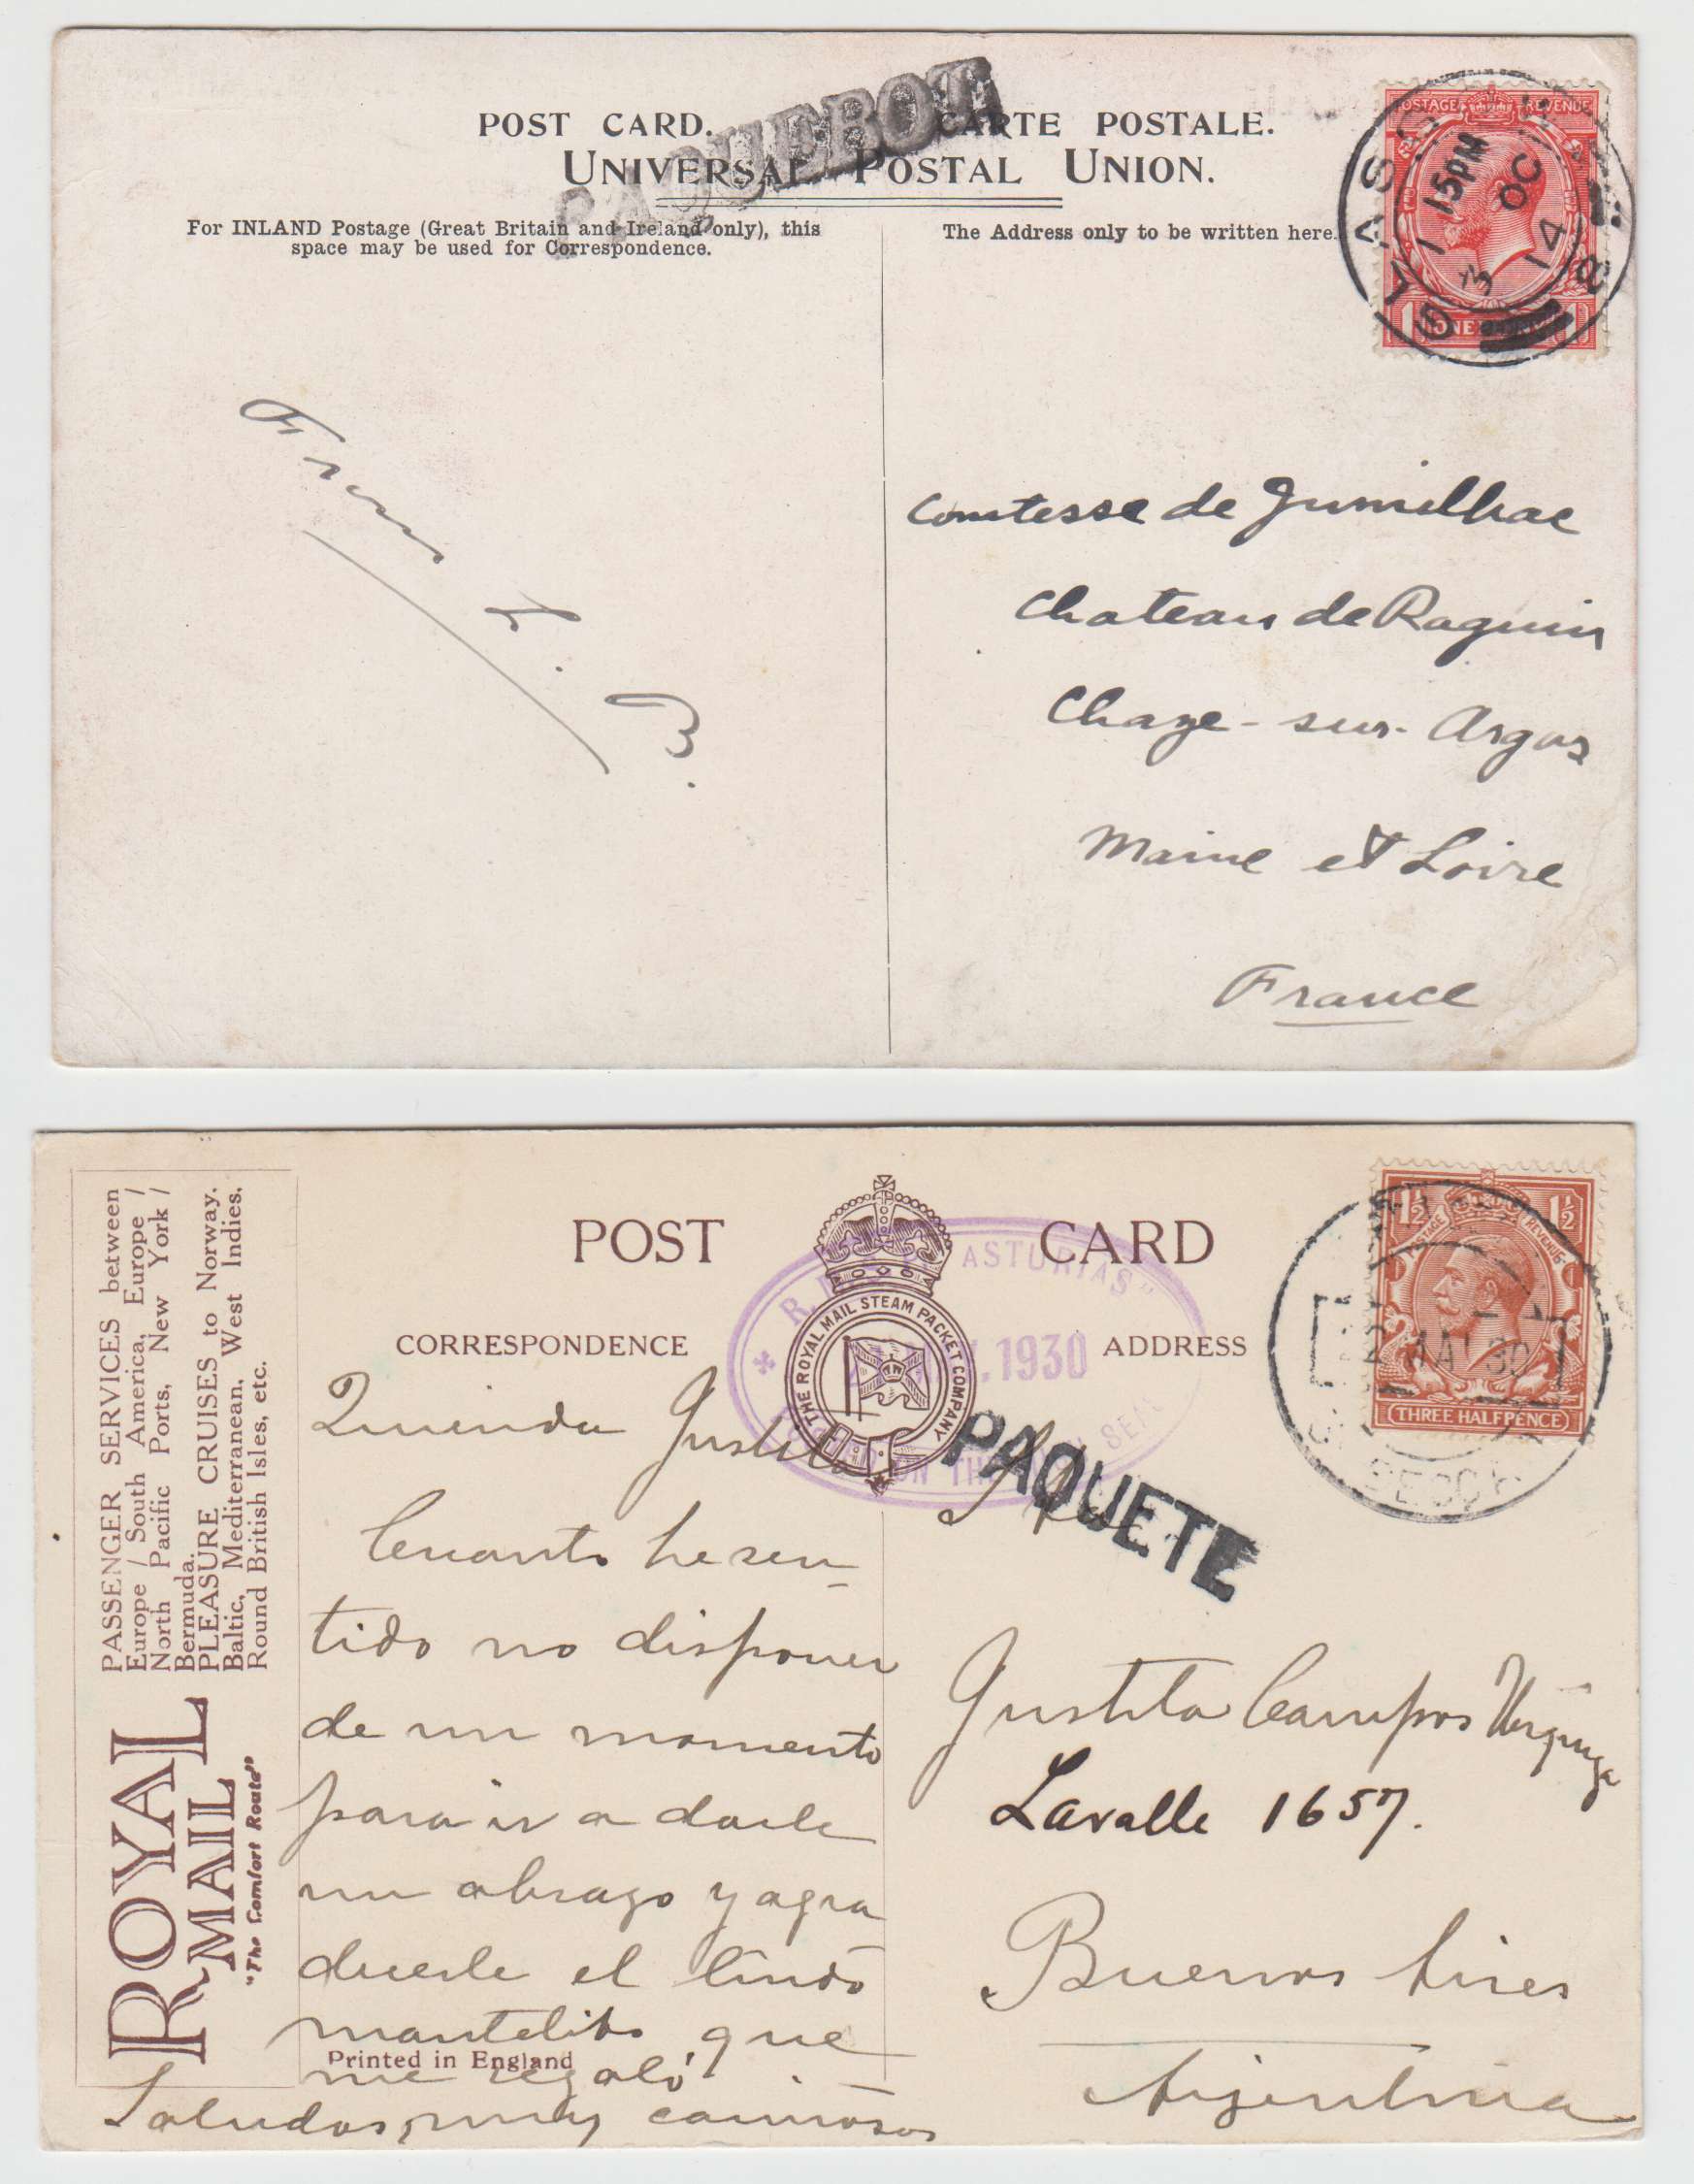 POST CARD. CARTE POSTALE.
PAQUEBOT
UNIVERSAL POSTAL UNION.
For INLAND Postage (Great Britain and Ireland only), this
space may be used for Correspondence.
The Address only to be written here.
POSTAGE REVENUE
1 ONE PENNY 1
GLASGOW
1 15PM
3 OC
14
From
Comtesse de Jumilhac
Chateau de Raguin
Chaze-sur-Argos
Maine et Loire
France
POST CARD
CORRESPONDENCE ADDRESS
THE ROYAL MAIL STEAM PACKET COMPANY
ASTURIAS"
1930
ON THE SEAS
PAQUETE
1½ POSTAGE REVENUE 1½
THREE HALFPENCE
30
PASSENGER SERVICES between
Europe / South America, Europe /
North Pacific Ports, New York /
Bermuda.
PLEASURE CRUISES to Norway,
Baltic, Mediterranean, West Indies,
Round British Isles, etc.
ROYAL
MAIL
"The Comfort Route"
Justita
Cuanto he sen-
tido no disponer
de un momento
para ir a darle
un abrazo y agra
decerle el lindo
mantelito que
me regaló.
Saludos muy cariñosos
Printed in England
Justita Campos
Lavalle 1657.
Buenos Aires
Argentina